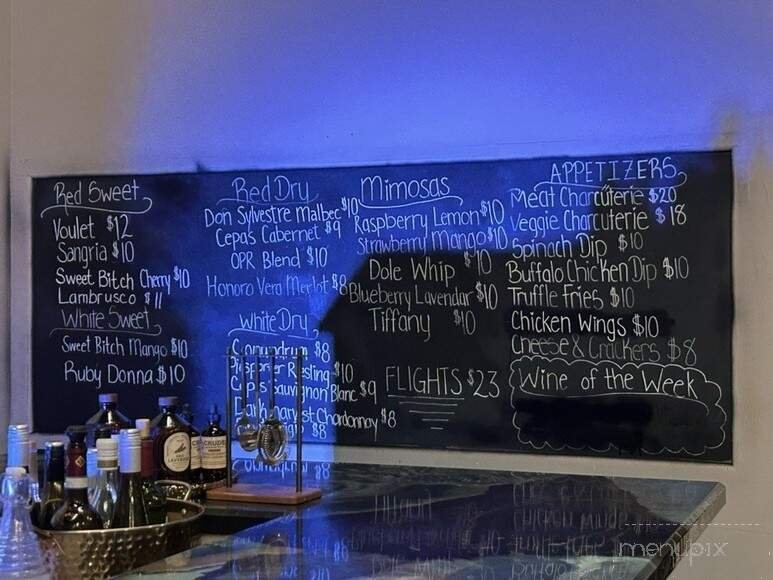 Red Sweet
Voulet $12
Sangria $10
Sweet Bitch Cherry $10
Lambrusco $11
White Sweet
Sweet Bitch Mango $10
Ruby Donna $10
Red Dry
Don Sylvestre Malbec $10
Cepas Cabernet $9
OPR Blend $10
Honoro Vera Merlot $8
White Dry
Conundrum $8
Resling $10
Sauvignon Blanc $9
Dark Harvest Chardonnay $8
$8
Mimosas
Raspberry Lemon $10
Strawberry Mango $10
Dole Whip $10
Blueberry Lavendar $10
Tiffany $10
FLIGHTS $23
APPETIZERS
Meat Charcuterie $20
Veggie Charcuterie $18
Spinach Dip $10
Buffalo Chicken Dip $10
Truffle Fries $10
Chicken Wings $10
Cheese & Crackers $8
Wine of the Week
menupix